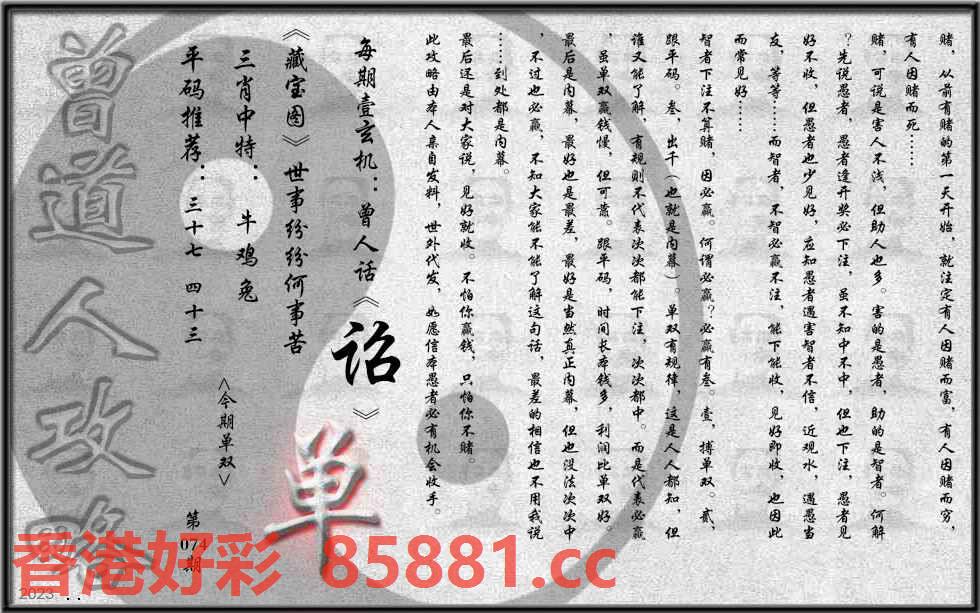 赌，从前有赌的第一天开始，就注定有人因赌而富，有人因赌而穷，
有人因赌而死……
赌，可说是害人不浅，但助人也多。害的是愚者，助的是智者。何解
？先说愚者，愚者逢开奖必下注，虽不知中不中，但也下注，愚者见
好不收，但愚者也少见好，应知愚者遇害智者不信，近观水，遇愚当
友，等等……而智者，不智必赢不注，能下能收，见好即收，也因此
而常见好……
智者下注不算赌，因必赢。何谓必赢？必赢有叁。壹，搏单双。贰，
跟平码。叁，出千（也就是内幕）。单双有规律，这是人人都知，但
谁又能了解，有规则不代表次次都能下注，次次都中。而是代表必赢
，虽单双赢钱慢，但可靠。跟平码，时间长本钱多，利润比单双好。
最后是内幕，最好也是最差，最好是当然真正内幕，但也没法次次中
，不过也必赢，不知大家能不能了解这句话，最差的相信也不用我说
……到处都是内幕。
最后还是对大家说，见好就收。不怕你赢钱，只怕你不赌。
此攻略由本人亲自发料，世外代发，如愿信本愚者必有机会收手。
每期壹玄机：曾人话《诏》
《藏宝图》世事纷纷何事苦
三肖中特：牛鸡兔
<今期单双>
单
平码推荐：三十七 四十三
第074期
曾道人攻略
香港好彩 85881.cc
2023